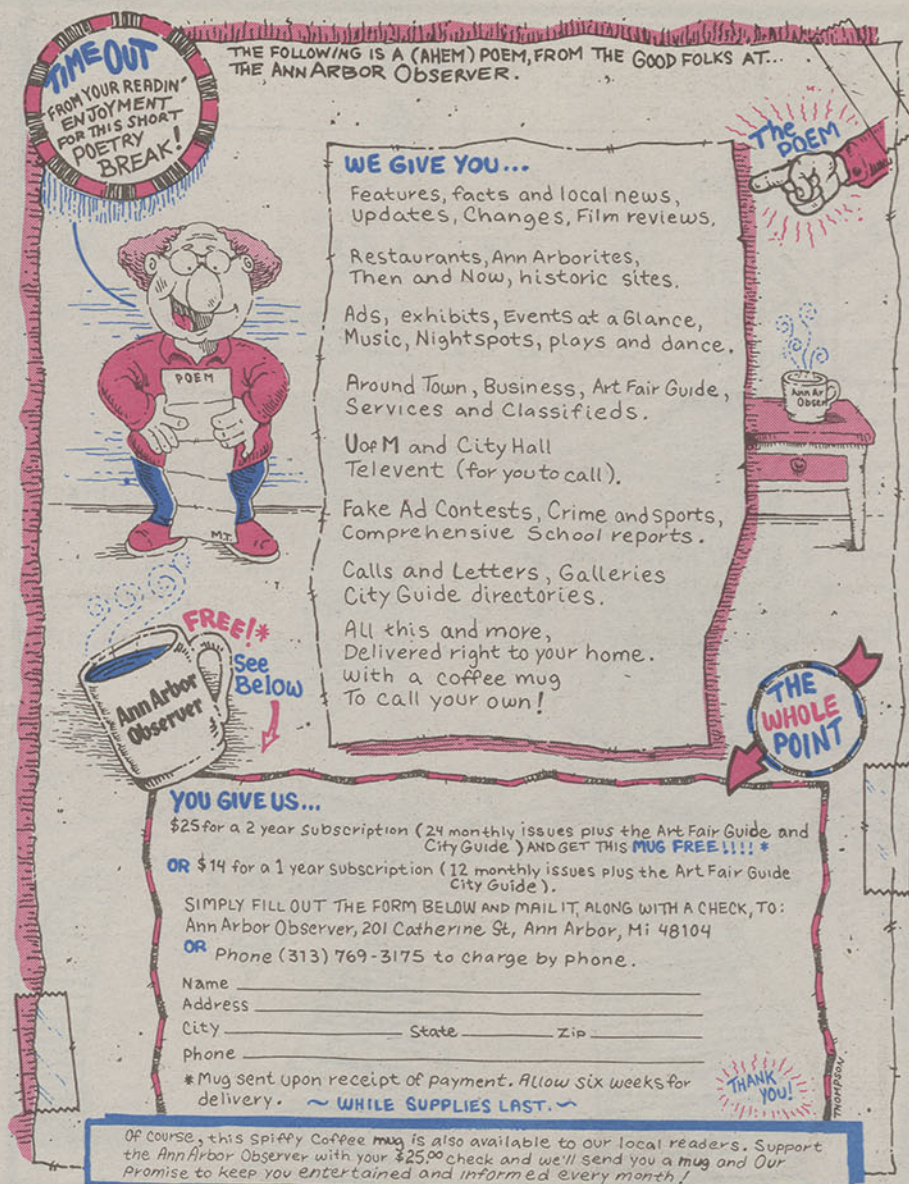 TIME OUT
FROM YOUR READIN'
ENJOYMENT
FOR THIS SHORT
POETRY
BREAK!
THE FOLLOWING IS A (AHEM) POEM, FROM THE GOOD FOLKS AT...
THE ANN ARBOR OBSERVER.
The
POEM
WE GIVE YOU...
Features, facts and local news,
updates, Changes, Film reviews.
Restaurants, Ann Arborites,
Then and Now, historic sites.
Ads, exhibits, Events at a Glance,
Music, Nightspots, plays and dance.
Around Town, Business, Art Fair Guide,
Services and Classifieds.
U of M and City Hall
Televent (for you to call).
Fake Ad Contests, Crime and sports,
Comprehensive School reports.
Calls and Letters, Galleries
City Guide directories.
All this and more,
Delivered right to your home.
with a coffee mug
To call your own!
POEM
M.T.
Ann Ar
Obser
FREE!*
See
Below
Ann Arbor
Observer
THE
WHOLE
POINT
YOU GIVE US...
$25 for a 2 year subscription (24 monthly issues plus the Art Fair Guide and
City Guide) AND GET THIS MUG FREE!!!! *
OR $14 for a 1 year subscription (12 monthly issues plus the Art Fair Guide
City Guide).
SIMPLY FILL OUT THE FORM BELOW AND MAIL IT, ALONG WITH A CHECK, TO:
Ann Arbor Observer, 201 Catherine St, Ann Arbor, Mi 48104
OR Phone (313) 769-3175 to charge by phone.
Name
Address
City State Zip
Phone
* Mug sent upon receipt of payment. Allow six weeks for
delivery. ~ WHILE SUPPLIES LAST. ~
THANK
YOU!
THOMPSON
Of course, this spiffy Coffee mug is also available to our local readers. Support
the Ann Arbor Observer with your $25.00 check and we'll send you a mug and Our
Promise to keep you entertained and informed every month!